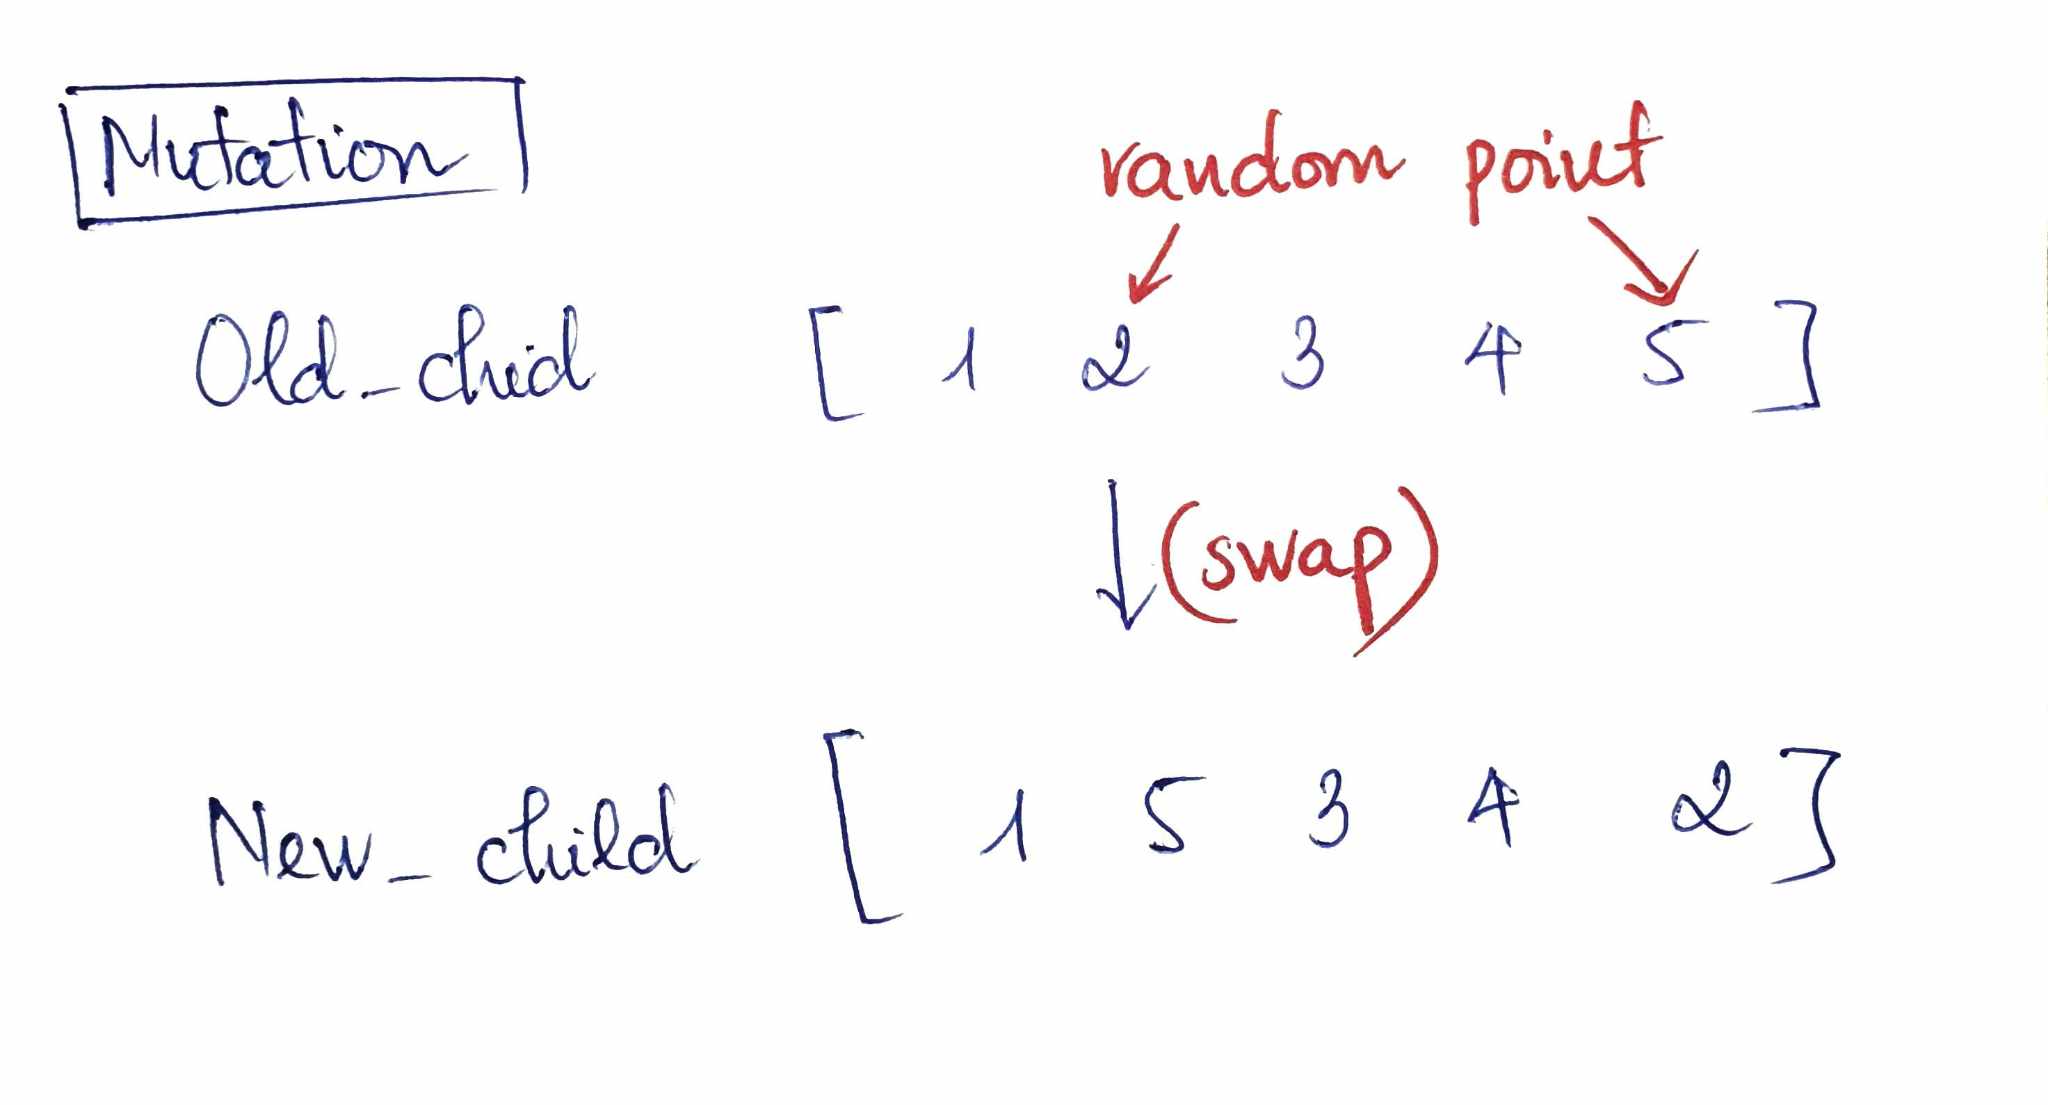 Mutation
random point
Old_chid [ 1 2 3 4 5 ]
(swap)
New_child [ 1 5 3 4 2 ]